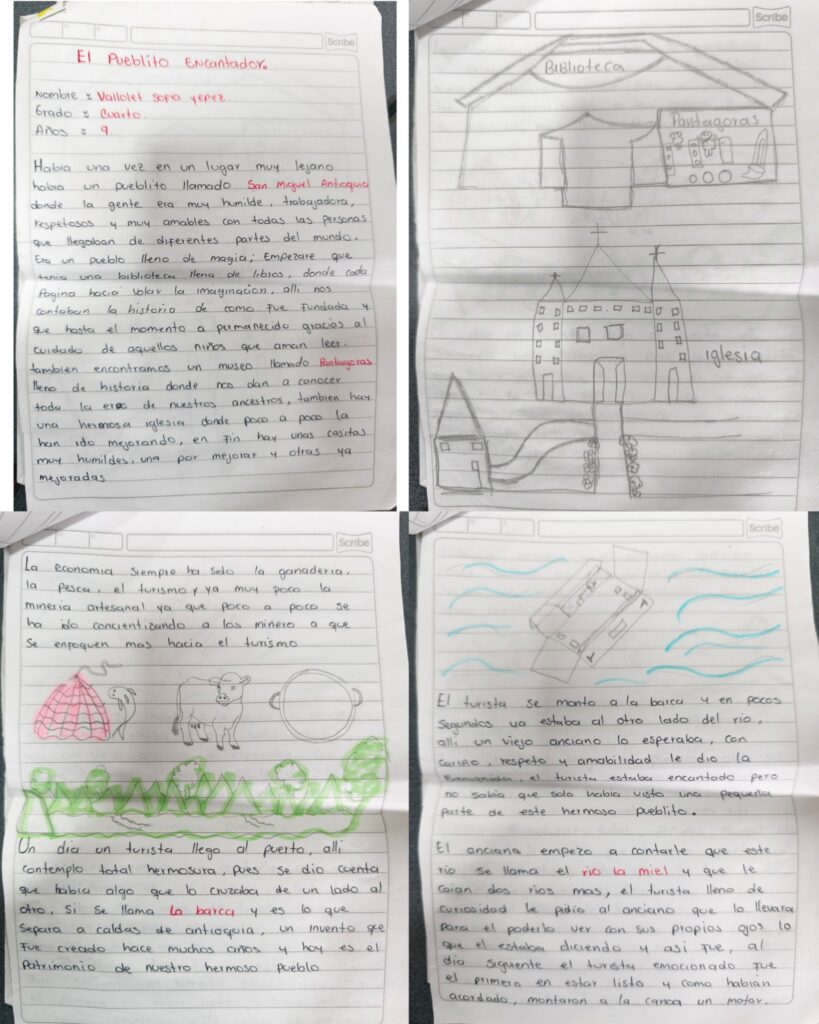 Scribe
El Pueblito Encantador.
Nombre: Vallolet Sofia Yepez.
Grado: Cuarto.
Años: 9.
Habia una vez en un lugar muy lejano
habia un pueblito llamado San Miguel Antioquia
donde la gente era muy humilde, trabajadora,
respetosos y muy amables con todas las personas
que llegaban de diferentes partes del mundo.
Era un pueblo lleno de magia; Empezare que
tenia una biblioteca llena de libros, donde cada
Pagina hacia volar la imaginacion, alli nos
contaban la historia de como fue fundada y
que hasta el momento a permanecido gracias al
cuidado de aquellos niños que aman leer.
tambien encontramos un museo llamado Pantagoras
lleno de historia donde nos dan a conocer
toda la era de nuestros ancestros, tambien hay
una hermosa iglesia donde poco a poco la
han ido mejorando, en fin hay unas casitas
muy humildes, una por mejorar y otras ya
mejoradas
Scribe
Biblioteca
Pantagoras
iglesia
Scribe
La economia siempre ha sido la ganaderia,
la pesca, el turismo y ya muy poco la
mineria artesanal ya que poco a poco se
ha ido concientizando a los minero a que
se enfoquen mas hacia el turismo
Un dia un turista llego al puerto, alli
contemplo total hermosura, pues se dio cuenta
que habia algo que lo cruzaba de un lado al
otro, si se llama la barca y es lo que
separa a caldas de antioquia, un invento que
fue creado hace muchos años y hoy es el
Patrimonio de nuestro hermoso pueblo
Scribe
El turista se monto a la barca y en pocos
segundos ya estaba al otro lado del rio,
alli un viejo anciano lo esperaba, con
cariño, respeto y amabilidad le dio la
Bienvenida, el turista estaba encantado pero
no sabia que solo habia visto una pequeña
parte de este hermoso pueblito.
El anciano empezo a contarle que este
rio se llama el rio la miel y que le
caian dos rios mas, el turista lleno de
curiosidad le pidio al anciano que lo llevara
Para el poderlo ver con sus propios ojos lo
que el estaba diciendo y asi fue, al
dia siguente el turista emocionado fue
el primero en estar listo y como habian
acordado, montaron a la canoa un motor.